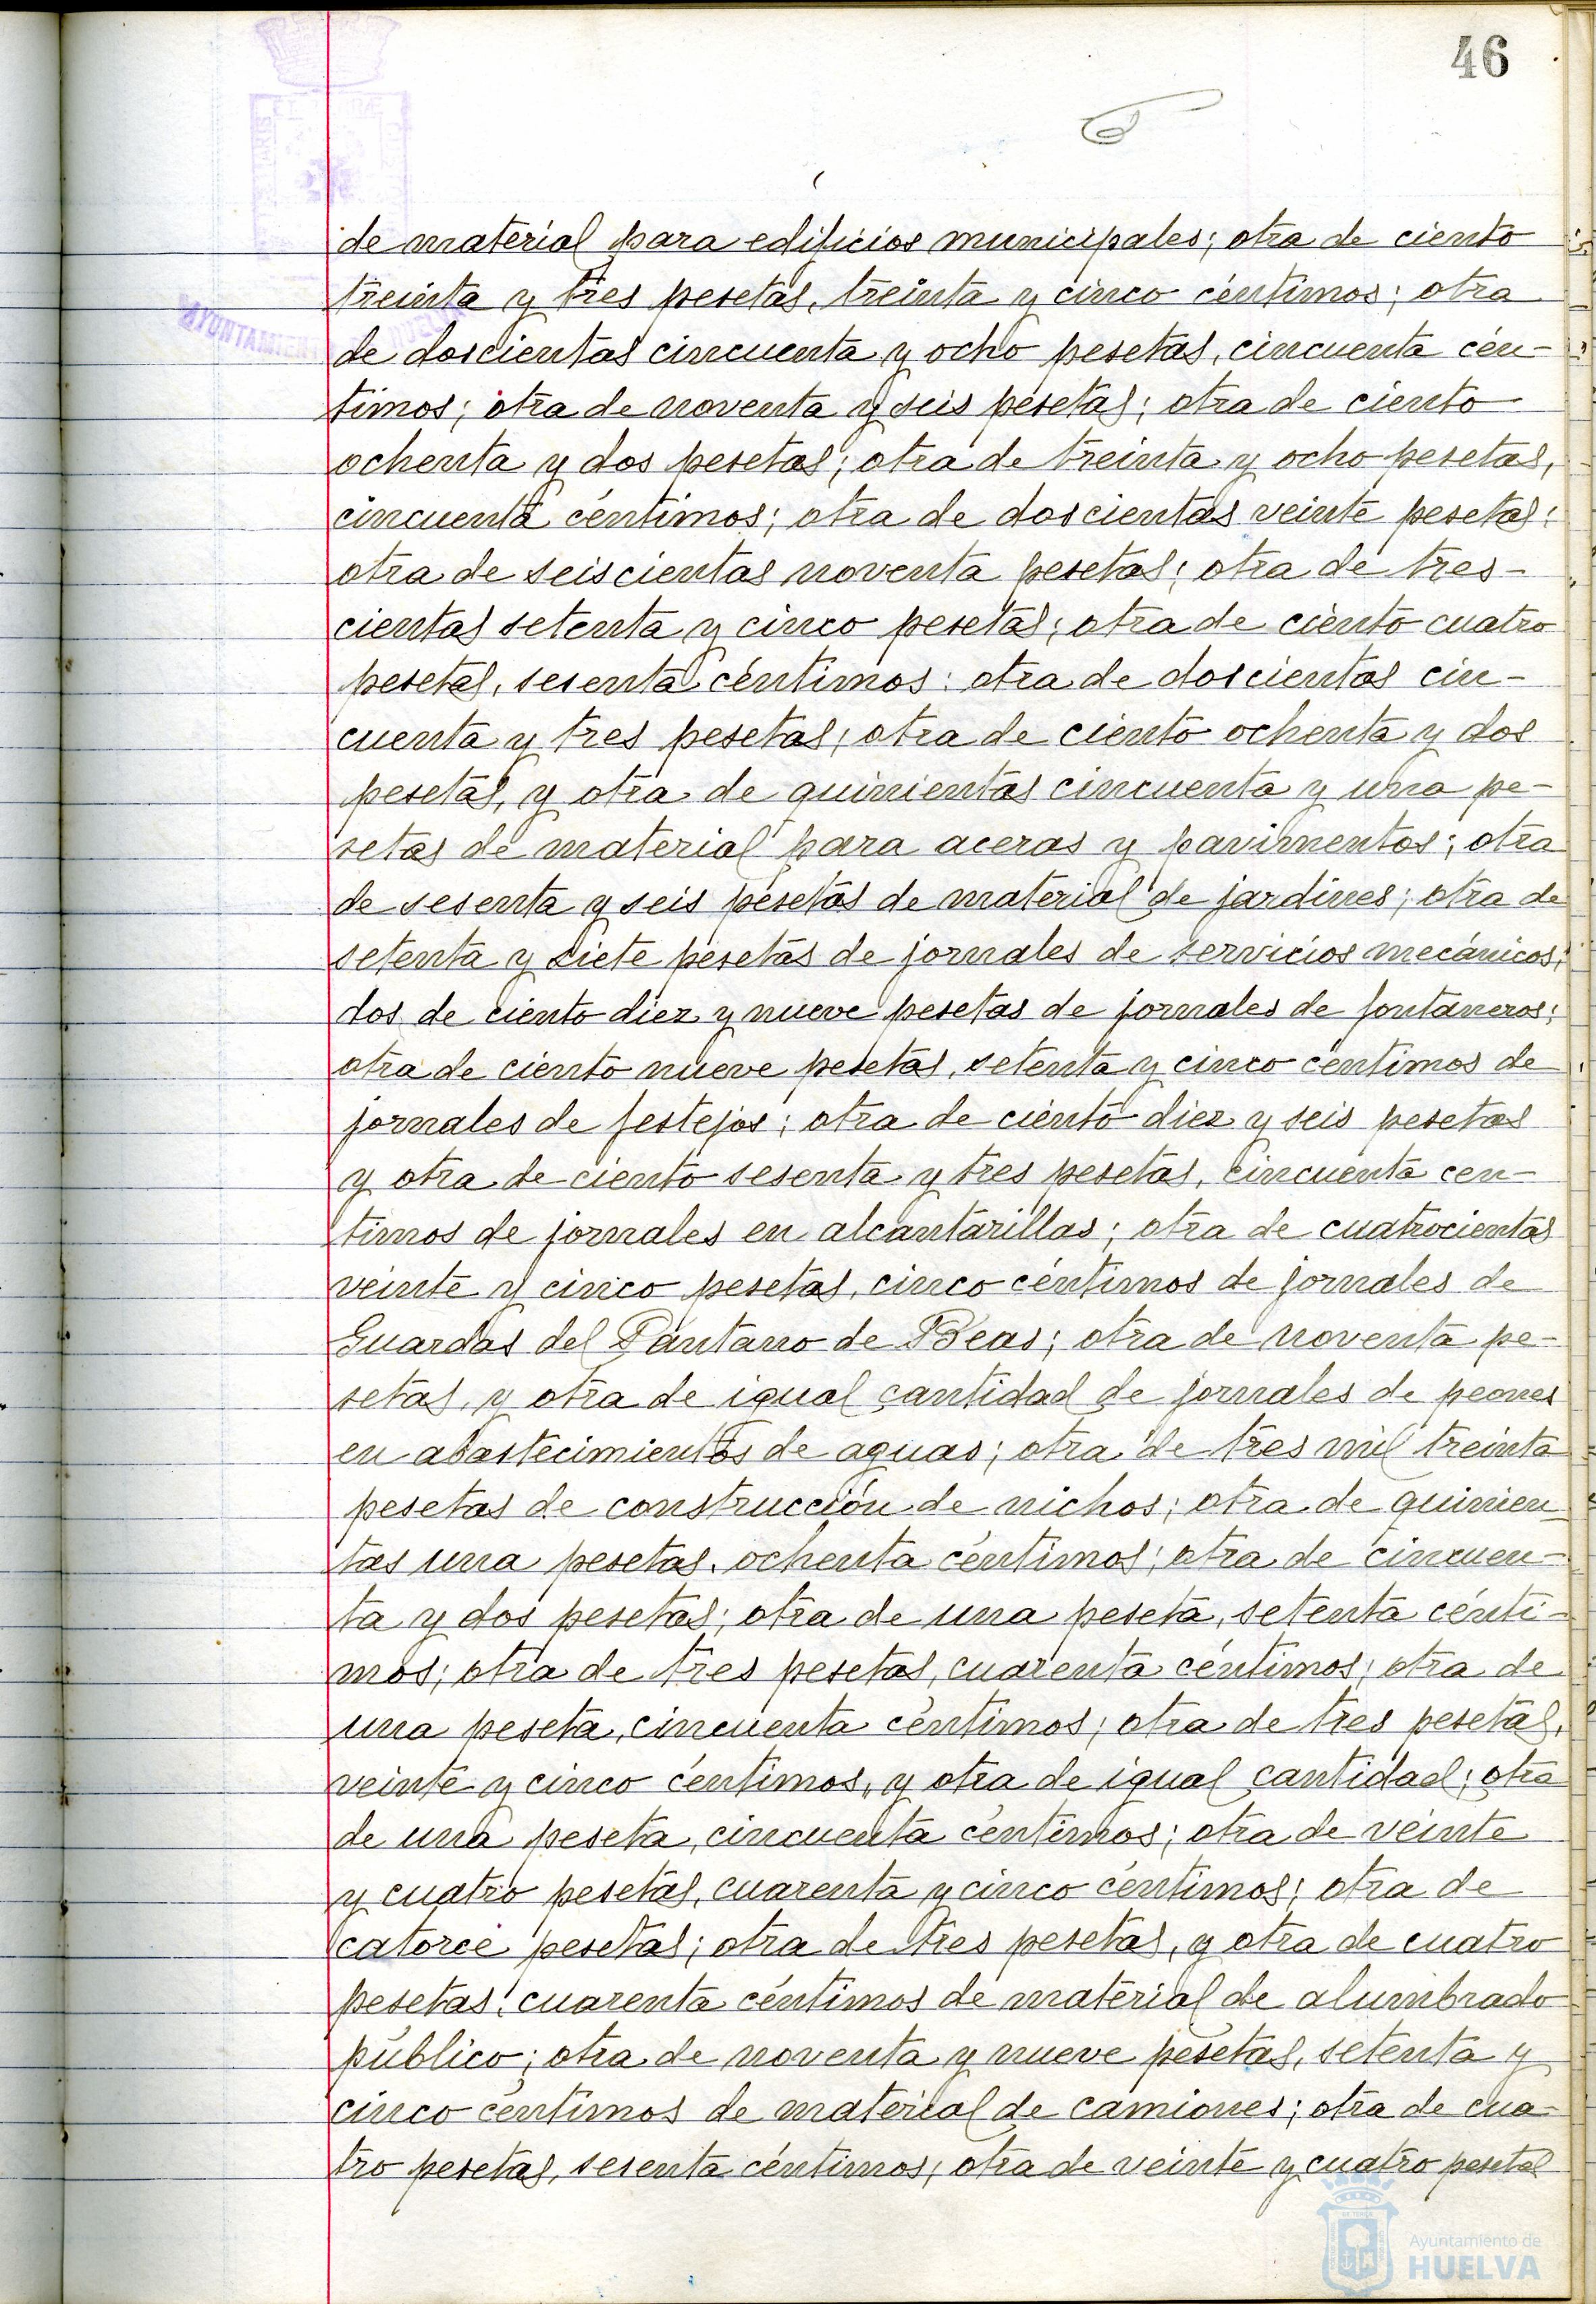 46
de material para edificios municipales; otra de ciento
treinta y tres pesetas, treinta y cinco céntimos; otra
de doscientas cincuenta y ocho pesetas, cincuenta cén-
timos; otra de noventa y seis pesetas; otra de ciento
ochenta y dos pesetas; otra de treinta y ocho pesetas,
cincuenta céntimos; otra de doscientas veinte pesetas;
otra de seiscientas noventa pesetas; otra de tres-
cientas setenta y cinco pesetas; otra de ciento cuatro
pesetas, sesenta céntimos; otra de doscientas cin-
cuenta y tres pesetas; otra de ciento ochenta y dos
pesetas, y otra de quinientas cincuenta y una pe-
setas de material para aceras y pavimentos; otra
de sesenta y seis pesetas de material de jardines; otra de
setenta y siete pesetas de jornales de servicios mecánicos;
dos de ciento diez y nueve pesetas de jornales de fontaneros;
otra de ciento nueve pesetas, setenta y cinco centimos de
jornales de festejos; otra de ciento diez y seis pesetas
y otra de ciento sesenta y tres pesetas, cincuenta cen-
timos de jornales en alcantarillas; otra de cuatrocientas
veinte y cinco pesetas, cinco céntimos de jornales de
Guardas del Pantano de Beas; otra de noventa pe-
setas, y otra de igual cantidad de jornales de peones
en abastecimientos de aguas; otra de tres mil treinta
pesetas de construcción de nichos; otra de quinien
tas una pesetas, ochenta céntimos; otra de cincuen-
ta y dos pesetas; otra de una peseta, setenta cénti-
mos; otra de tres pesetas, cuarenta céntimos; otra de
una peseta, cincuenta céntimos; otra de tres pesetas,
veinte y cinco céntimos, y otra de igual cantidad; otra
de una peseta, cincuenta céntimos; otra de veinte
y cuatro pesetas, cuarenta y cinco céntimos; otra de
catorce pesetas; otra de tres pesetas, y otra de cuatro
pesetas, cuarenta céntimos de material de alumbrado
público; otra de noventa y nueve pesetas, setenta y
cinco céntimos de material de camiones; otra de cua-
tro pesetas, sesenta céntimos; otra de veinte y cuatro pesetas
AYUNTAMIEN
Ayuntamiento de
HUELVA